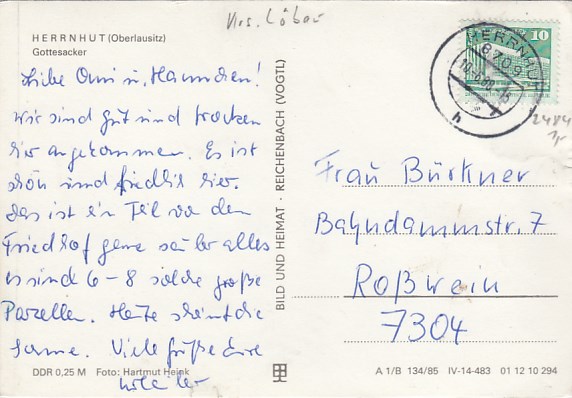 Krs. Löbau
HERRNHUT (Oberlausitz)
Gottesacker
Liebe Omi u. Hannchen!
Wir sind gut und trocken
hier angekommen. Es ist
schön und friedlich hier.
Das ist ein Teil von dem
Friedhof ganz sauber alles
es sind 6-8 solche große
Parzellen. Heute scheint die
Sonne. Viele Grüße Eure
DDR 0,25 M Foto: Hartmut Heink
BILD UND HEIMAT · REICHENBACH (VOGTL)
10
HERRNHUT
8709
h
2484
Frau Bürkner
Bahndammstr. 7
Roßwein
7304
A 1/B 134/85 IV-14-483 01 12 10 294